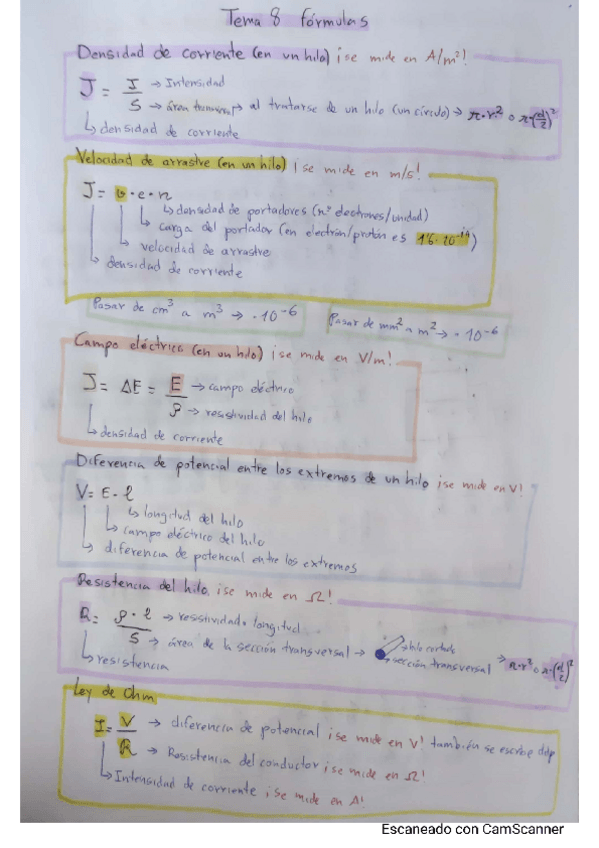 Tema 8 fórmulas
Densidad de corriente (en un hilo) ¡se mide en A/m²!
J = I/S
→ Intensidad
→ área transversal → al tratarse de un hilo (un círculo) → π·r² o π·(d/2)²
↳ densidad de corriente
Velocidad de arrastre (en un hilo) ¡se mide en m/s!
J = v · e · n
↳ densidad de portadores (nº electrones/unidad)
↳ carga del portador (en electrón/protón es 1'6·10⁻¹⁹)
↳ velocidad de arrastre
↳ densidad de corriente
Pasar de cm³ a m³ → ·10⁻⁶
Pasar de mm² a m² → ·10⁻⁶
Campo eléctrico (en un hilo) ¡se mide en V/m!
J = ΔE = E/ρ
→ campo eléctrico
→ resistividad del hilo
↳ densidad de corriente
Diferencia de potencial entre los extremos de un hilo ¡se mide en V!
V = E · l
↳ longitud del hilo
↳ campo eléctrico del hilo
↳ diferencia de potencial entre los extremos
Resistencia del hilo ¡se mide en Ω!
R = ρ · l/S
→ resistividad · longitud
→ área de la sección transversal →
→ hilo cortado
→ sección transversal → π·r² o π·(d/2)²
↳ resistencia
Ley de Ohm
I = V/R
→ diferencia de potencial ¡se mide en V! también se escribe ddp
→ Resistencia del conductor ¡se mide en Ω!
↳ Intensidad de corriente ¡se mide en A!
Escaneado con CamScanner